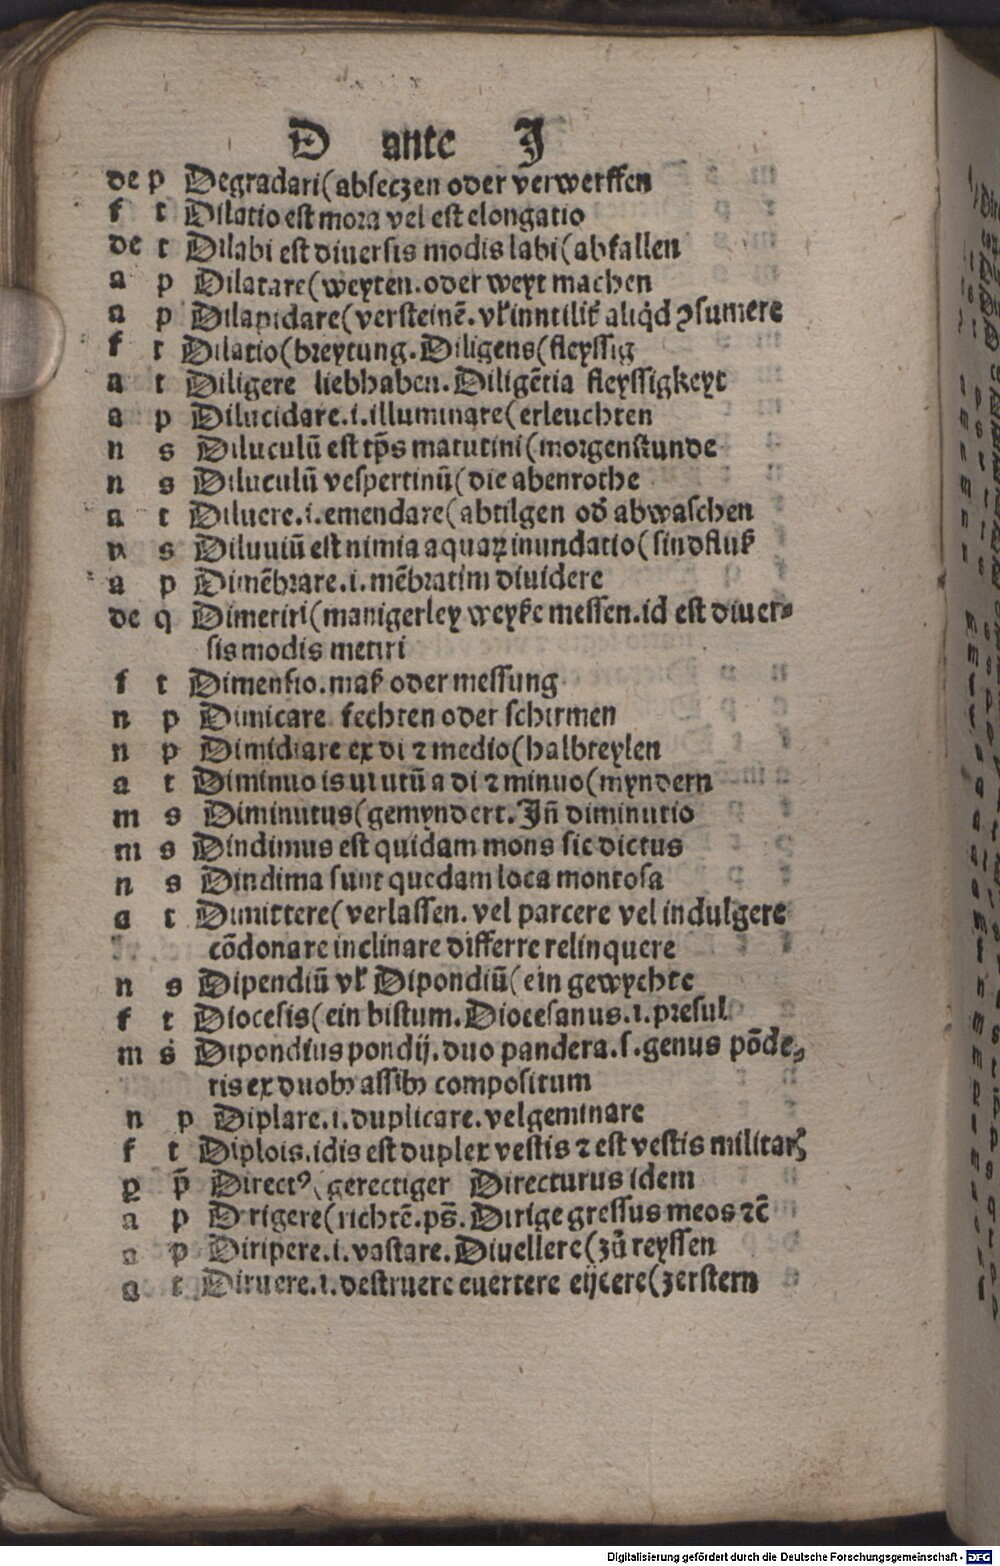 D ante J
de p Degradari(abseczen oder verwerffen
f t Dilatio est mora vel est elongatio
de t Dilabi est diuersis modis labi(abfallen
a p Dilatare(weyten.oder weyt machen
a p Dilapidare(versteinē. vl̕ inutilit̕ aliq̇d ꝯsumere
f t Dilatio(breytung.Diligens(fleyssig
a t Diligere liebhaben.Diligētia fleyssigkeyt
a p Dilucidare.i.illuminare(erleuchten
n s Diluculū est tp̄s matutini(morgenstunde
n s Diluculū vespertinū(die abenrothe
a t Diluere.i.emendare(abtilgen od̕ abwaschen
n s Diluuiū est nimia aquaꝝ inundatio(sindfluß
a p Dimēbrare.i.mēbratim diuidere
de q Dimetiri(manigerley weyße messen.id est diuer⸗
sis modis metiri
f t Dimensio.maß oder messung
n p Dimicare fechten oder schirmen
n p Dimidiare ex di ⁊ medio(halbteylen
a t Diminuo is ui utū a di ⁊ minuo(myndern
m s Diminutus(gemyndert.Jn̄ diminutio
m s Dindimus est quidam mons sic dictus
n s Dindima sunt quedam loca montosa
a t Dimittere(verlassen.vel parcere vel indulgere
cōdonare inclinare differre relinquere
n s Dipendiū vl̕ Dipondiū(ein gewychte
f t Diocesis(ein bistum.Diocesanus.i.presul
m s Dipondius pondij.duo pandera.s.genus pōde⸗
ris ex duobꝫ assibꝫ compositum
n p Diplare.i.duplicare.vel geminare
f t Diplois.idis est duplex vestis ⁊ est vestis militaꝶ
ꝑ p̄ Directꝰ(gerectiger Directurus idem
a p Dirigere(richtē.ps̄.Dirige gressus meos ⁊c̄
a p Diripere.i.vastare.Diuellere(zů reyssen
a t Diruere.i.destruere euertere eijcere(zerstern
Digitalisierung gefördert durch die Deutsche Forschungsgemeinschaft - DFG